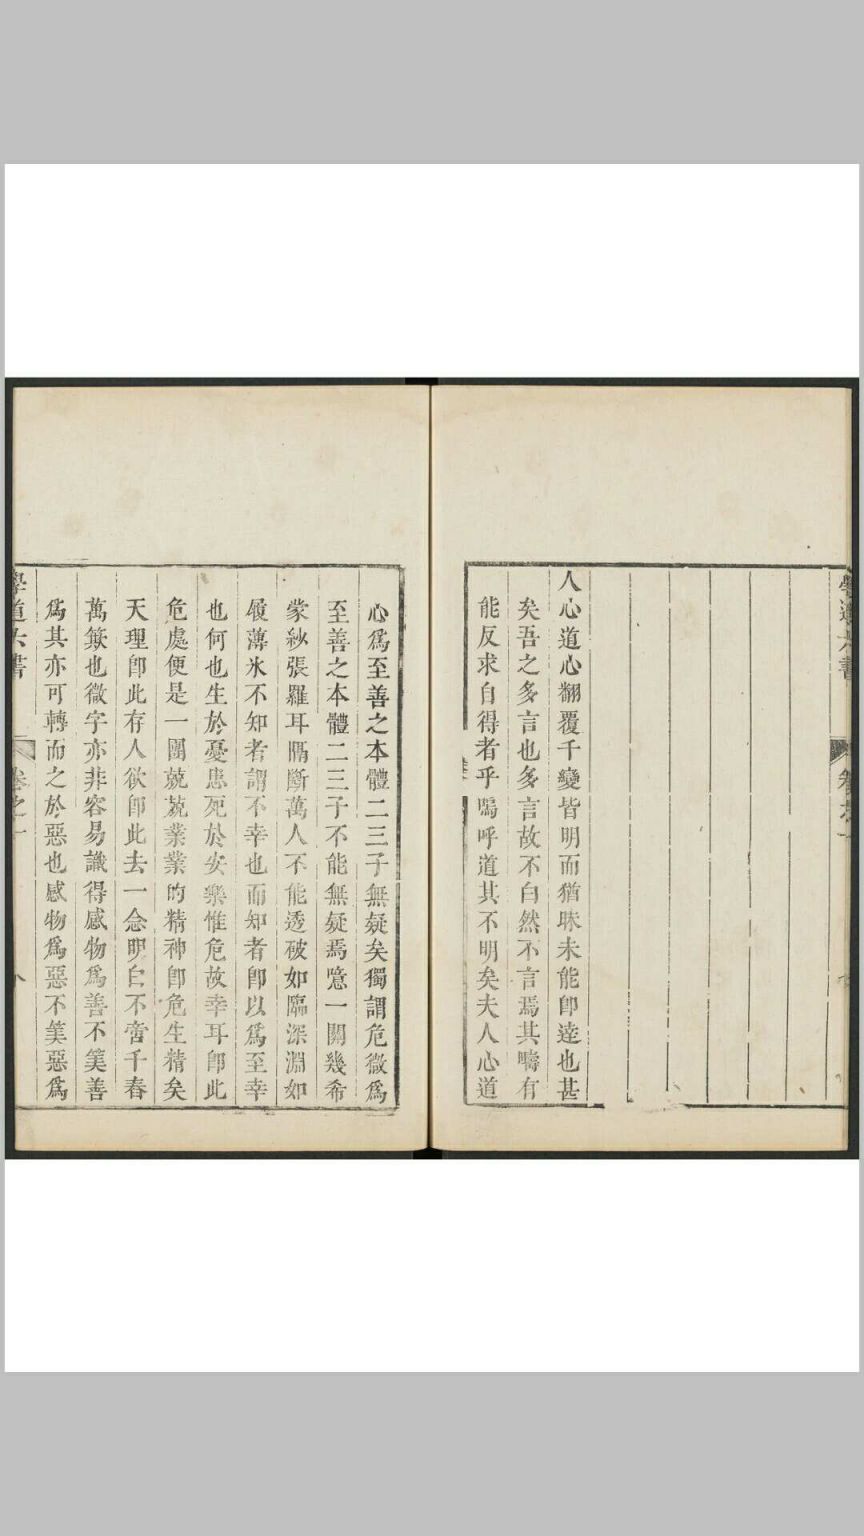 學道六書
卷之一
人心道心翻覆千變皆明而猶昧未能卽逹也甚
矣吾之多言也多言故不白然不言焉其疇有
能反求自得者乎嗚呼道其不明矣夫人心道
心爲至善之本體二三子無疑矣獨謂危微爲
至善之本體二三子不能無疑焉噫一關幾希
蒙紗張羅耳隔斷萬人不能透破如臨深淵如
履薄氷不知者謂不幸也而知者卽以爲至幸
也何也生於憂患死於安樂惟危故幸耳卽此
危處便是一團兢兢業業的精神卽危生精矣
天理卽此存人欲卽此去一念明白不啻千舂
萬簸也微字亦非容易識得感物爲善不笑善
爲其亦可轉而之於惡也感物爲惡不笑惡爲
學道六書
卷之一
八